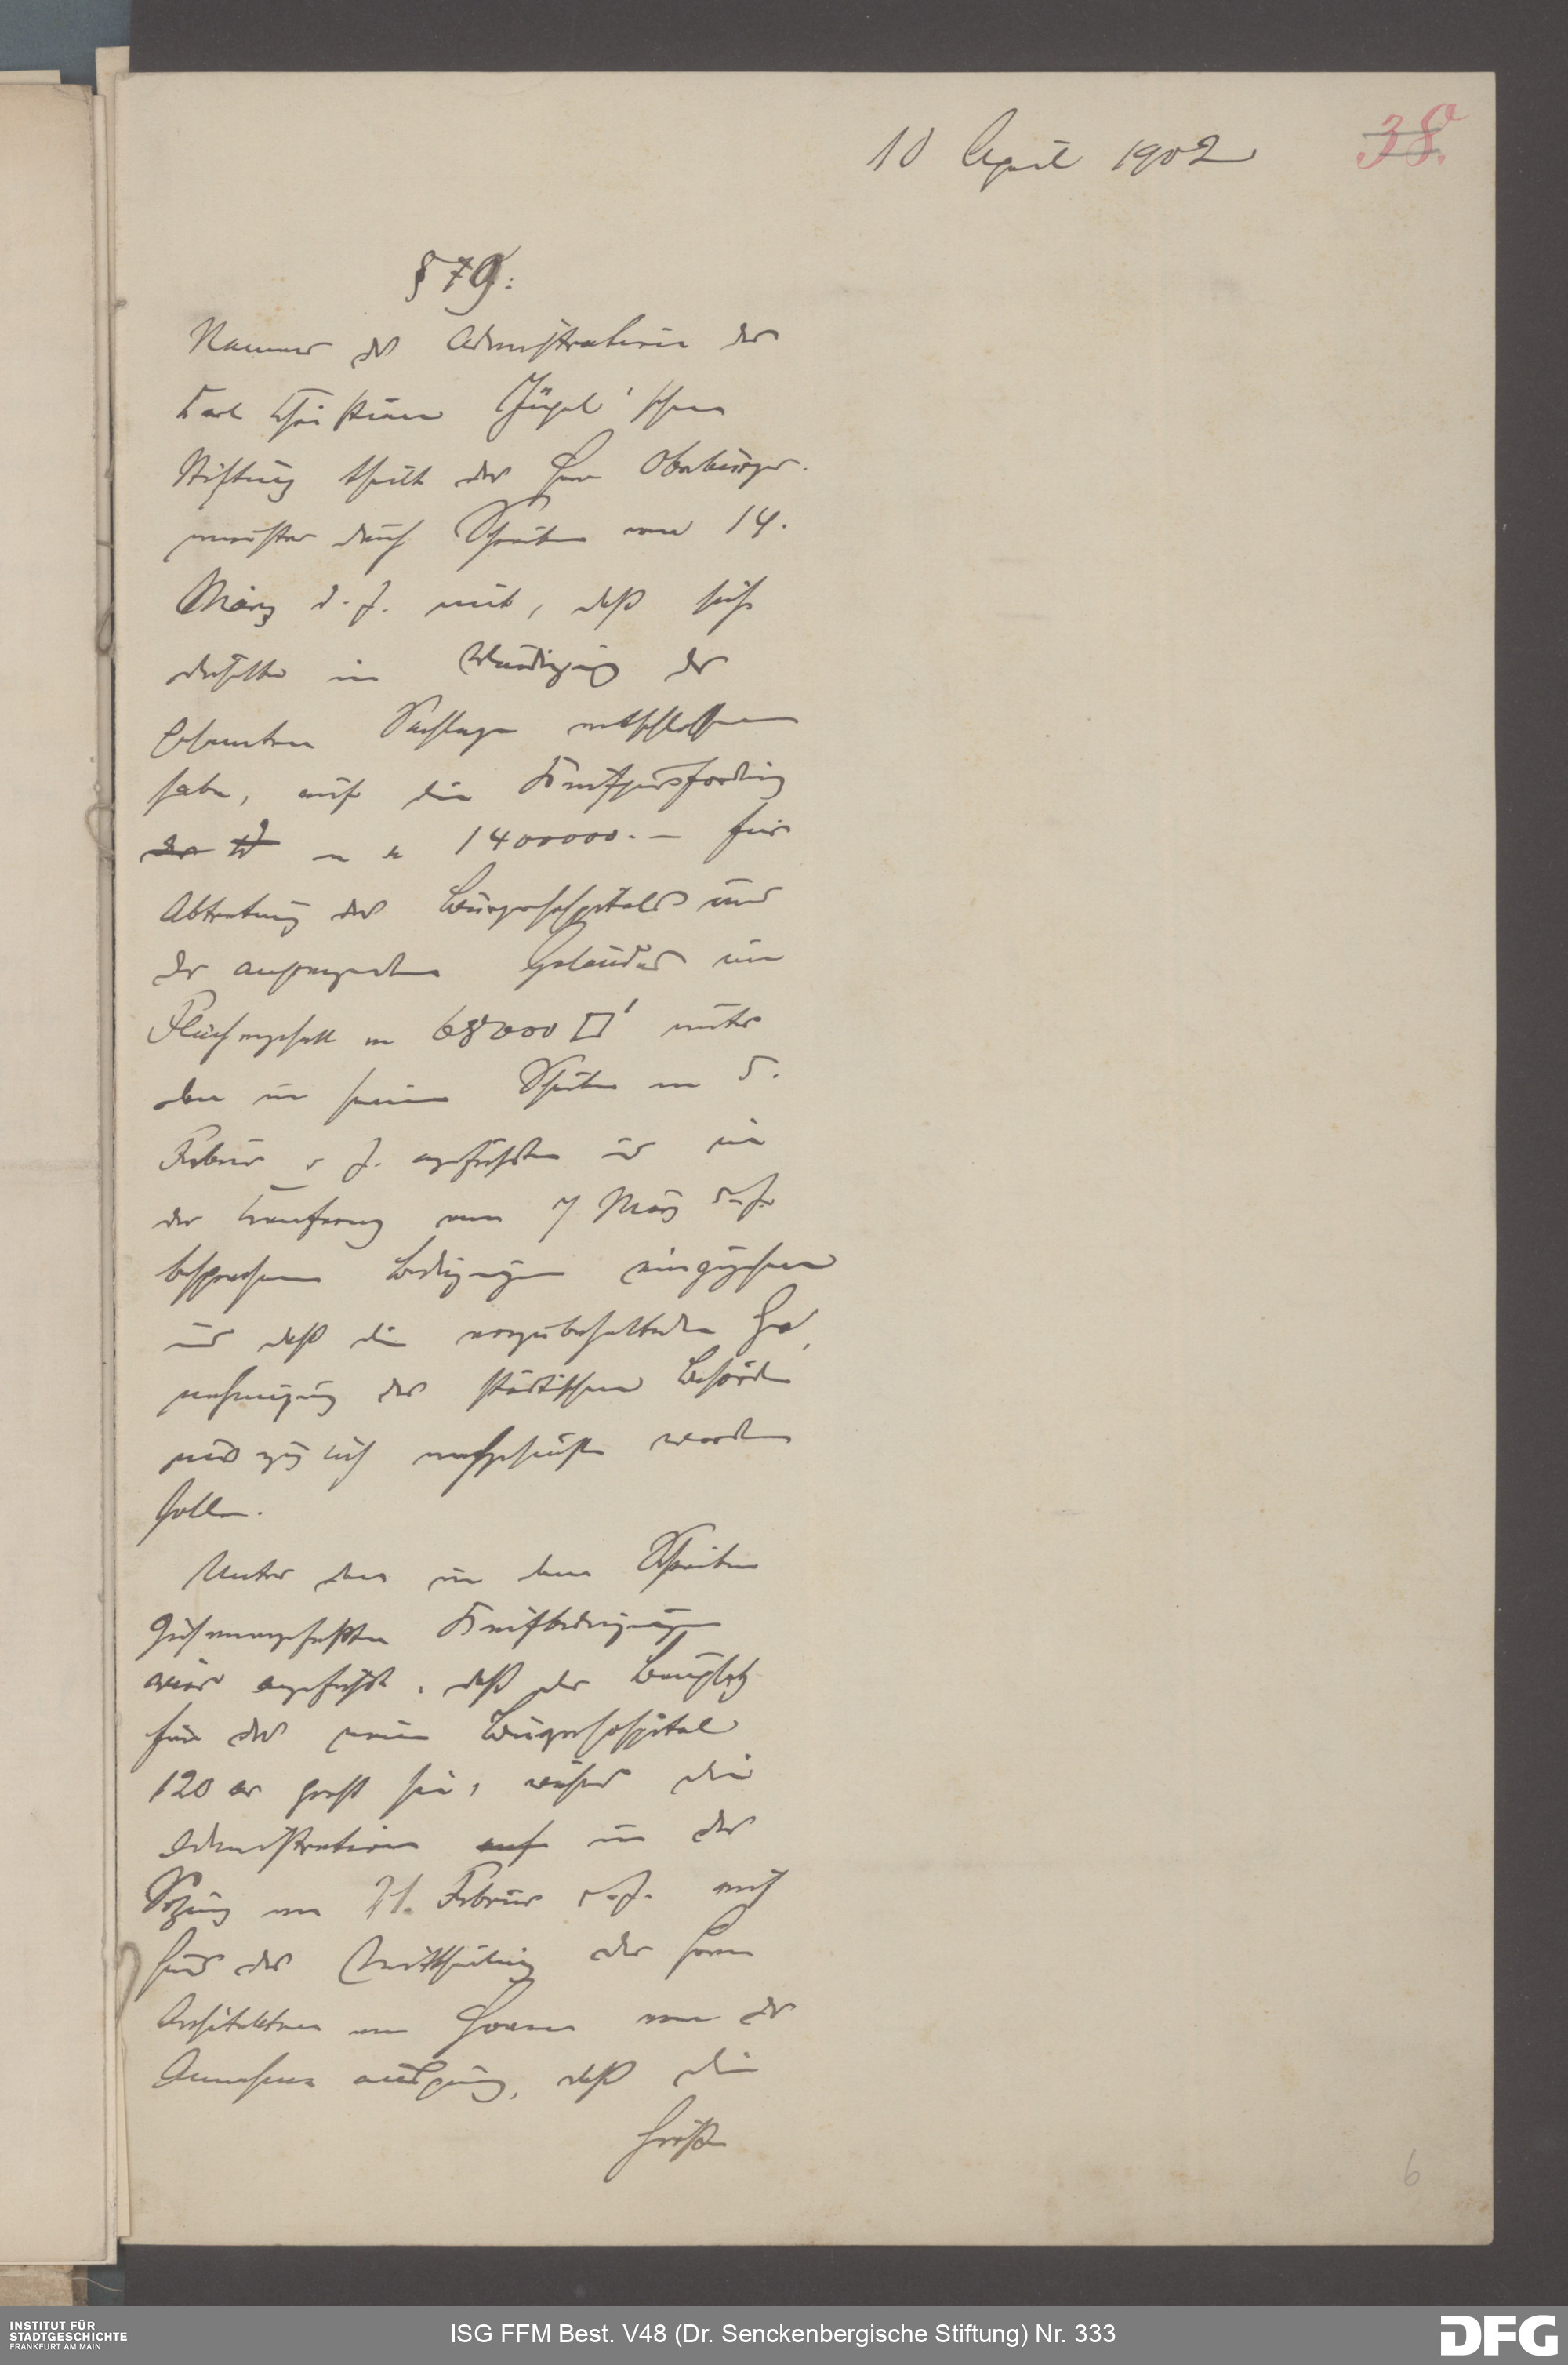 10 April 1902
38.
§ 79.
Namens der Administration der
Karl Christian Jügel'schen
Stiftung theilt der Herr Oberbürger-
meister durch Schreiben vom 14.
März d. J. mit, daß sich
dieselbe in Würdigung der
bekannten Sachlage entschlossen
habe, auf die Kaufpreisforderung
der W von M 1400000.— für
Abtretung des Bürgerhospitals und
des angrenzenden Geländes im
Flächengehalt von 68000 □' unter
den in seinem Schreiben vom 5.
Februar d. J. angeführten und in
der Konferenz vom 7 März d. J.
besprochenen Bedingungen einzugehen
und daß die vorzubehaltende Ge-
nehmigung der städtischen Behörden
nachgesucht werden
solle.
Unter den in dem Schreiben
zusammengefaßten Kaufbedingungen
wird angeführt, daß der Bauplatz
für das neue Bürgerhospital
120 ar groß sei, während die
Administration auf in der
Sitzung vom 21. Februar d. J. auf
Grund der Mittheilung des Herrn
Architekten von Hoven von der
Annahme ausging, daß die
Größe
6
INSTITUT FÜR
STADTGESCHICHTE
FRANKFURT AM MAIN
ISG FFM Best. V48 (Dr. Senckenbergische Stiftung) Nr. 333
DFG